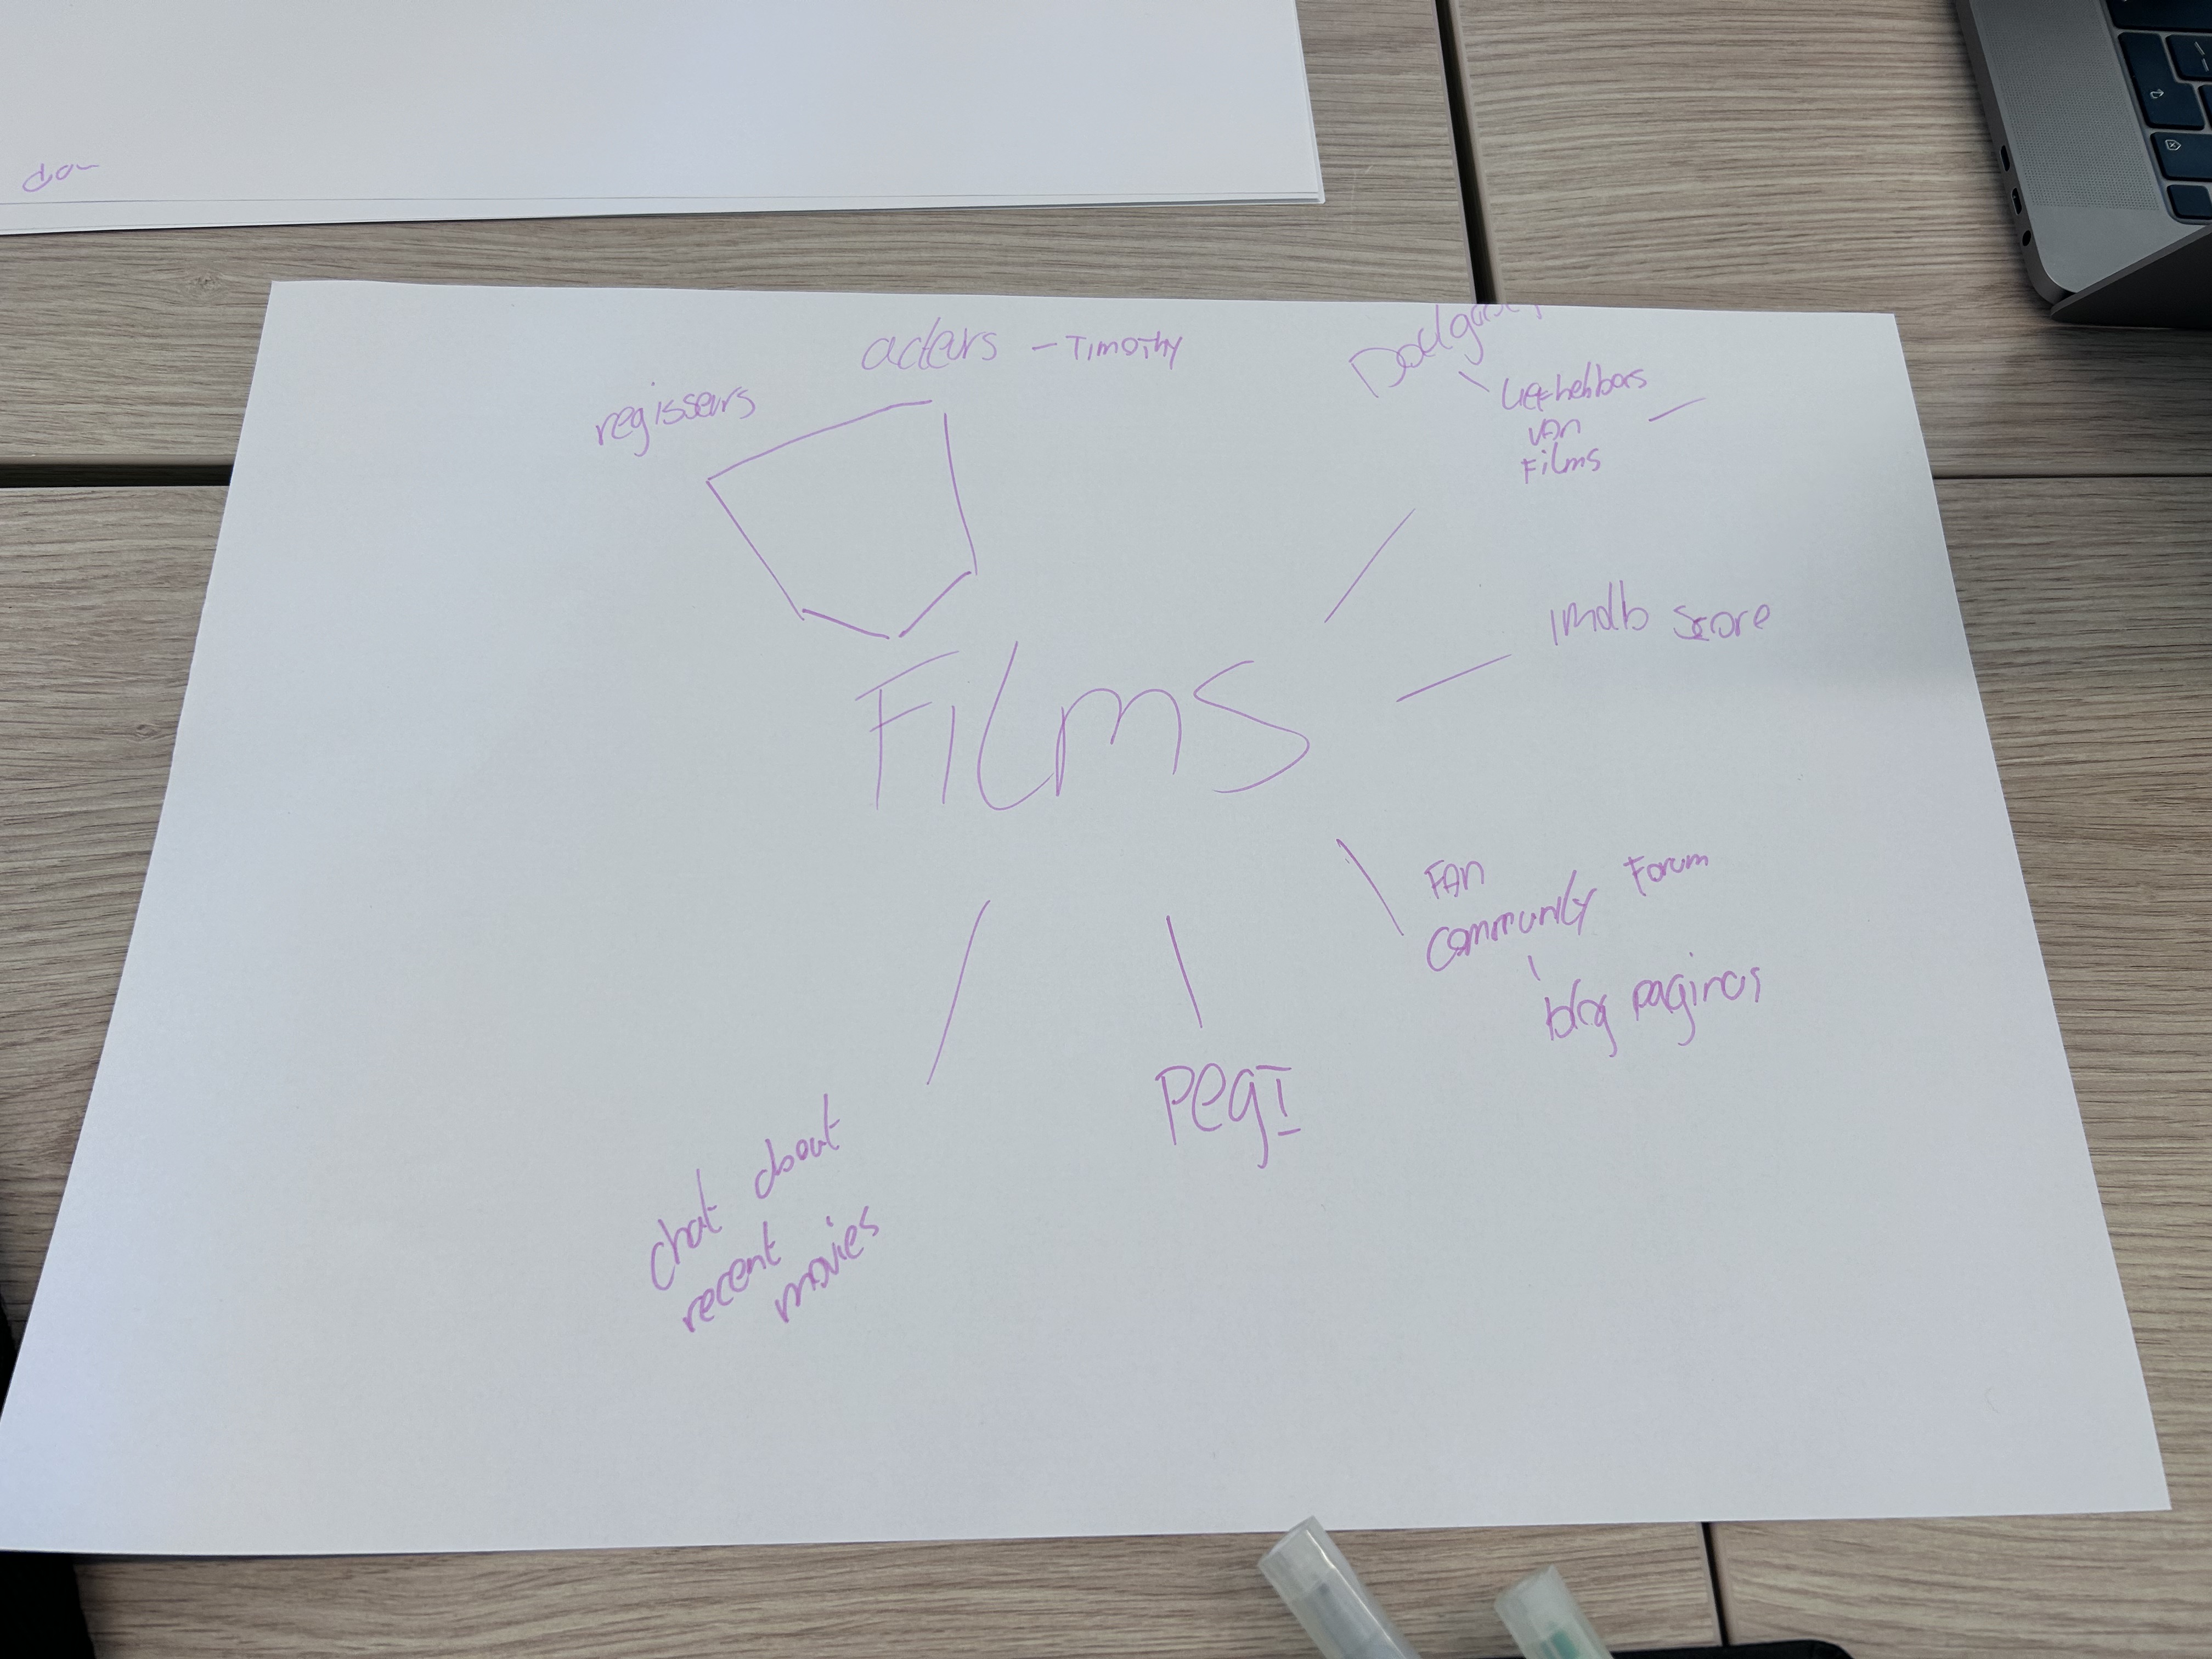 acteurs - Timothy
regisseurs
Liefhebbers
van
Films
imdb score
Films
FAN
community Forum
blog paginas
PEGI
chat about
recent
movies